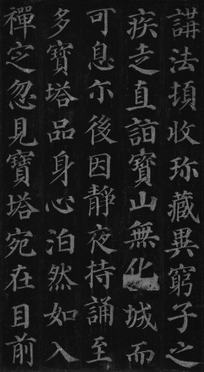 講法頃收珎藏異窮子之
疾走直詣寶山無化城而
可息尒後因靜夜持誦至
多寶塔品身心泊然如入
禪定忽見寶塔宛在目前